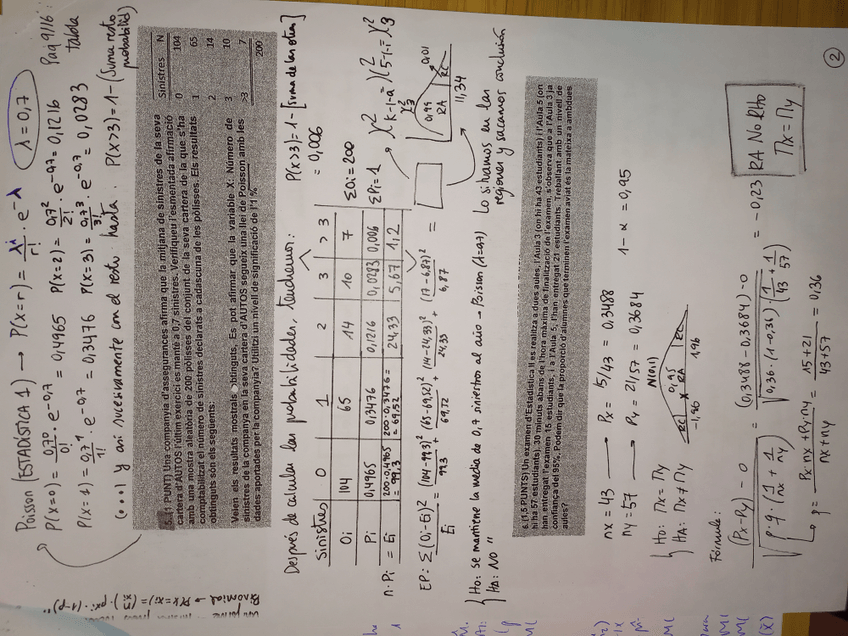 Poisson (ESTADÍSTICA 1) → P(X=r) = λ^r/r! · e^-λ
λ = 0,7
P(X=0) = 0,7⁰/0! · e^-0,7 = 0,4965 P(X=2) = 0,7²/2! · e^-0,7 = 0,1216
Pag 9/16:
tabla
P(X=1) = 0,7¹/1! · e^-0,7 = 0,3476 P(X=3) = 0,7³/3! · e^-0,7 = 0,0283
(...) y así sucesivamente con el resto hasta: P(X>3) = 1 - (Suma resto probabilid.)
5. (1 PUNT) Una companyia d'assegurances afirma que la mitjana de sinistres de la seva
cartera d'AUTOS l'últim exercici es manté a 0,7 sinistres. Verifiqueu l'esmentada afirmació
amb una mostra aleatòria de 200 pòlisses del conjunt de la seva cartera de la que s'ha
comptabilitzat el número de sinistres declarats a cadascuna de les pòlisses. Els resultats
obtinguts són els següents:
Sinistres N
0 104
1 65
2 14
3 10
>3 7
200
Veient els resultats mostrals obtinguts. Es pot afirmar que la variable X: Número de
sinistres de la companyia en la seva cartera d'AUTOS segueix una llei de Poisson amb les
dades aportades per la companyia? Utilitzi un nivell de significació de l'1 %
Después de calcular las probabilidades, tendremos:
P(X>3) = 1 - [Suma de las otras]
= 0,006
Sinistres 0 1 2 3 >3
Oi 104 65 14 10 7
ΣOi = 200
Pi 0,4965 0,3476 0,1216 0,0283 0,006
ΣPi = 1
n·Pi = Ei 200·0,4965 = 99,3 200·0,3476 = 69,52 24,33 5,67 1,2
EP: Σ(Oi-Ei)²/Ei = (104-99,3)²/99,3 + (65-69,52)²/69,72 + (14-24,33)²/24,33 + (17-6,87)²/6,87 =
0,99
RA
RC
0,01
11,34
{ Ho: se mantiene la media de 0,7 siniestros al año → Poisson (λ=0,7)
Ha: NO "
Lo situamos en las
regiones y sacamos conclusión
6. (1,5 PUNTS) Un examen d'Estadística II es realitza a dues aules, l'Aula 3 (on hi ha 43 estudiants) i l'Aula 5 (on
hi ha 57 estudiants). 30 minuts abans de l'hora màxima de finalització de l'examen, s'observa que a l'Aula 3 ja
han entregat l'examen 15 estudiants, i a l'Aula 5, l'han entregat 21 estudiants. Treballant amb un nivell de
confiança del 95%. Podem dir que la proporció d'alumnes que terminen l'examen aviat és la mateixa a ambdues
aules?
nx = 43 → Px = 15/43 = 0,3488
ny = 57 → Py = 21/57 = 0,3684
1 - α = 0,95
{ Ho: Πx = Πy
Ha: Πx ≠ Πy
N(0,1)
RC
0,95
RA
RC
-1,96
1,96
Fórmula:
(Px-Py) - 0 / √(p·q·(1/nx + 1/ny)) = (0,3488-0,3684)-0 / √(0,36·(1-0,36)·(1/43 + 1/57)) = -0,23
RA No RHo
Πx = Πy
p = Px·nx + Py·ny / nx+ny = 15+21 / 43+57 = 0,36
2